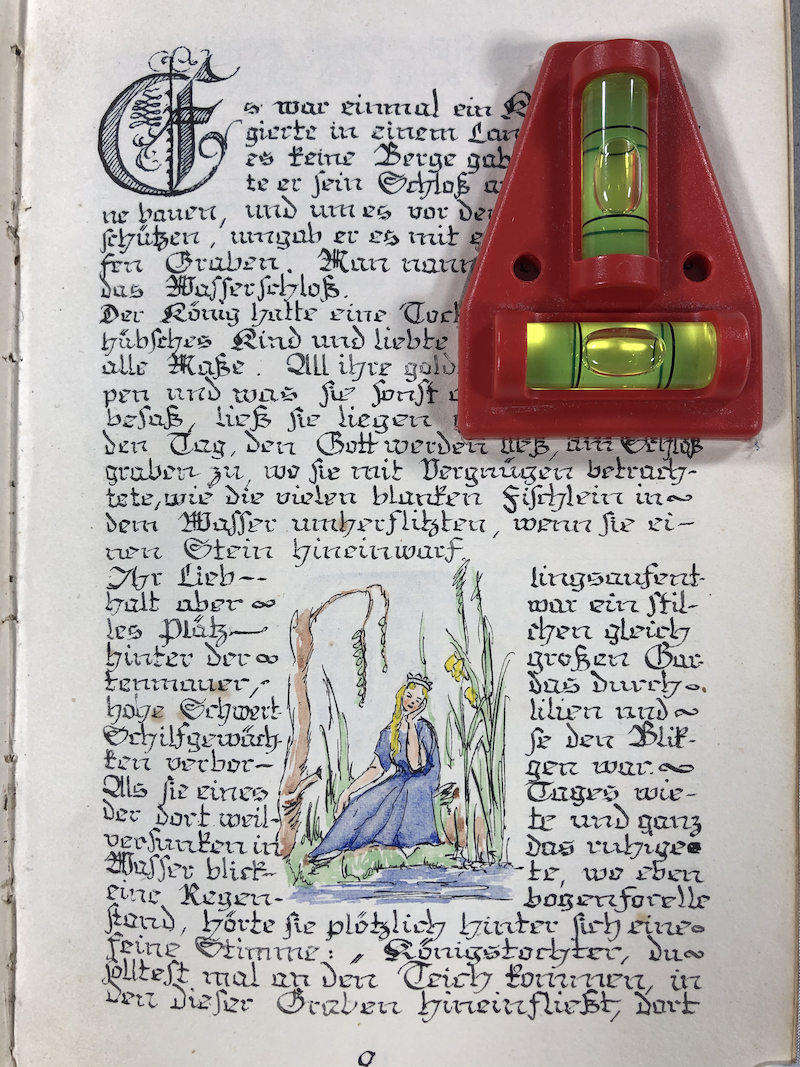 Es war einmal ein
gierte in einem
es keine Berge gab
te er sein Schloß
ne bauen, und um es vor
schützen, umgab er es mit
fen Graben. Man
das Wasserschloß.
Der König hatte eine
hübsches Kind und liebte
alle Maße. All ihre
pen und was sie sonst
besaß, ließ sie liegen
den Tag, den Gott werden ließ, am Schloß
graben zu, wo sie mit Vergnügen betrach-
tete, wie die vielen blanken Fischlein in
dem Wasser umherflitzten, wenn sie ei-
nen Stein hineinwarf.
Ihr Lieb-- lingsaufent-
halt aber war ein stil-
les Plätz- chen gleich
hinter der großen Gar-
tenmauer, das durch
hohe Schwert- lilien und
Schilfgewäch- se den Blik-
ken verbor- gen war.
Als sie eines Tages wie-
der dort weil- te und ganz
versunken in das ruhige
Wasser blick- te, wo eben
eine Regen- bogenforelle
stand, hörte sie plötzlich hinter sich eine
feine Stimme: „Königstochter, du
solltest mal an den Teich kommen, in
den dieser Graben hineinfließt, dort
9